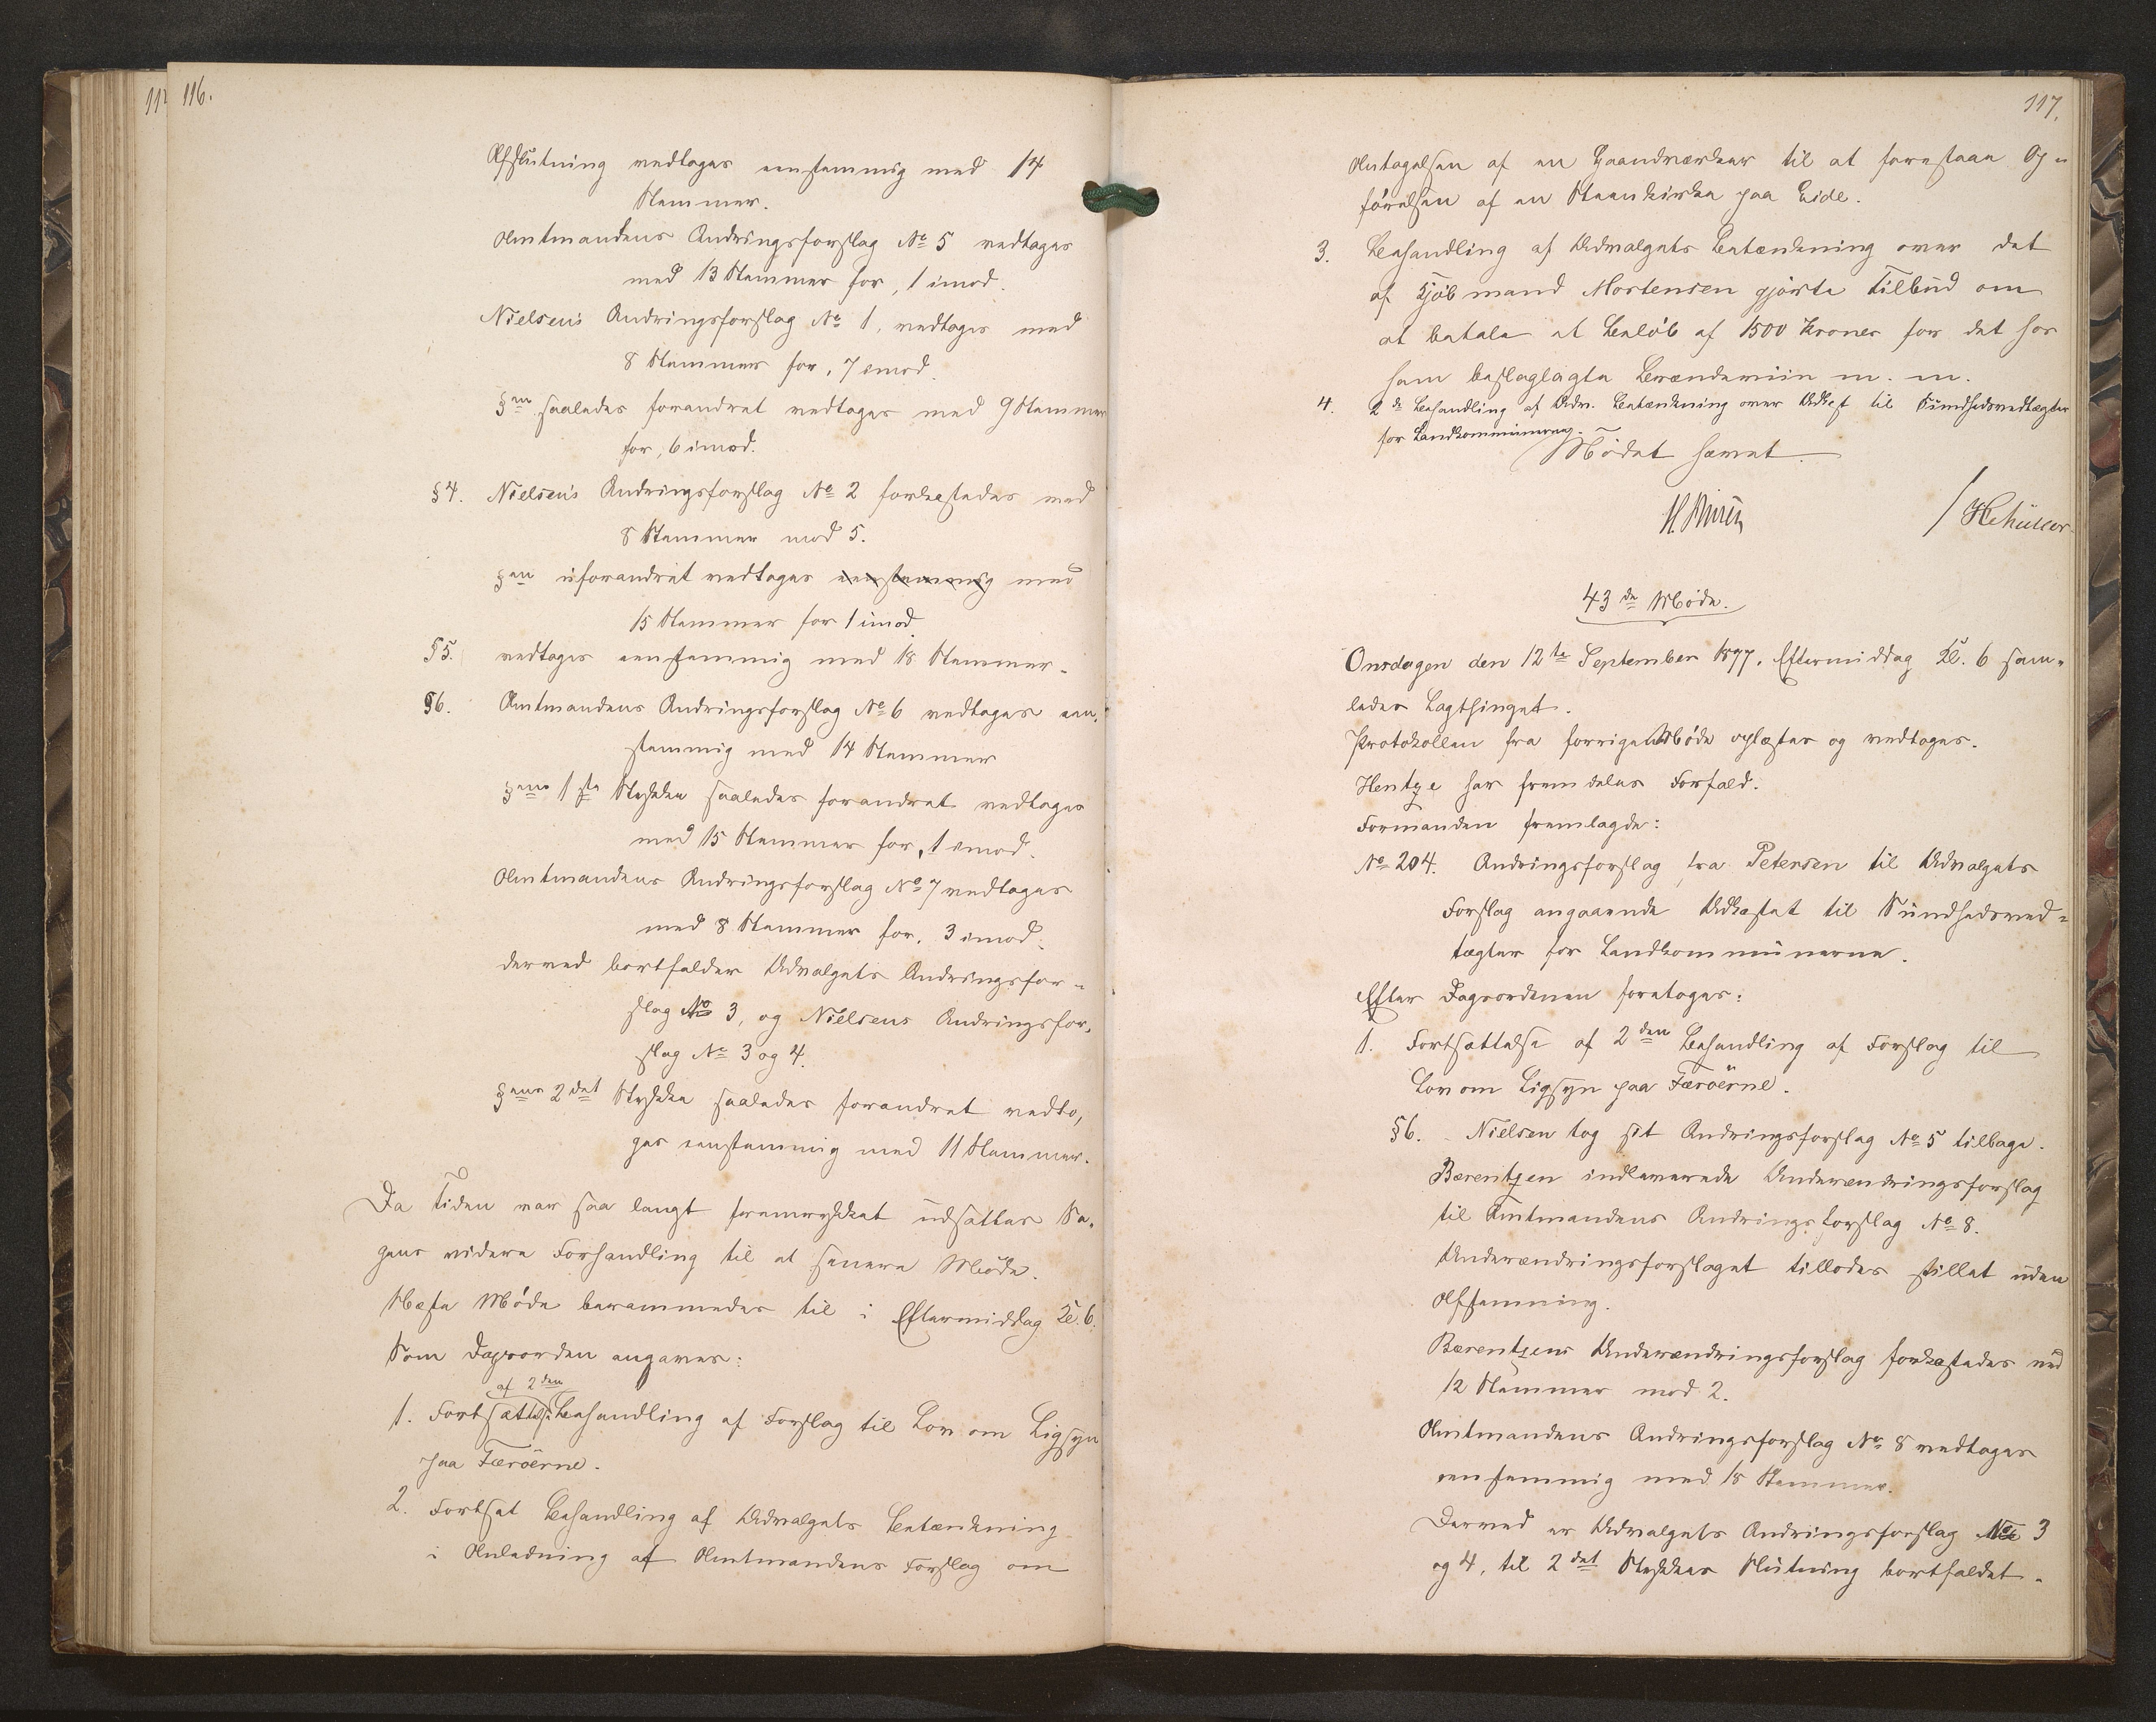 116.
Afslutning vedtoges eenstemmig med 14
Stemmer.
Amtmandens Ændringsforslag No 5 vedtoges
med 13 Stemmer for, 1 imod.
Nielsens Ændringsforslag No 1, vedtoges med
8 Stemmer for, 7 imod.
§en saaledes forandret vedtoges med 9 Stemmer
for, 6 imod.
§4. Nielsens Ændringsforslag No 2 forkastedes med
8 Stemmer mod 5.
§en uforandret vedtoges eenstemmig med
15 Stemmer for 1 imod.
§5. vedtoges eenstemmig med 18 Stemmer.
§6. Amtmandens Ændringsforslag No 6 vedtoges een-
stemmig med 14 Stemmer
§ens 1ste Stykke saaledes forandret vedtoges
med 15 Stemmer for, 1 imod.
Amtmandens Ændringsforslag No 7 vedtoges
med 8 Stemmer for, 3 imod.
derved bortfalder Udvalgets Ændringsfor-
slag No 3, og Nielsens Ændringsfor-
slag No 3 og 4.
§ens 2det Stykke saaledes forandret vedto-
ges eenstemmig med 11 Stemmer.
Da Tiden var saa langt fremrykket udsattes Sa-
gens videre Forhandling til et senere Møde.
Næste Møde berammedes til i Eftermiddag Kl. 6.
Som Dagsorden angaves:
af 2den
1. Fortsættelse Behandling af Forslag til Lov om Ligsyn
paa Færöerne.
2. Fortsat Behandling af Udvalgets Betænkning
i Anledning af Amtmandens Forslag om
117.
Antagelsen af en Haandværker til at forestaae Op-
førelsen af en Steenkirke paa Eide.
3. Behandling af Udvalgets Betænkning over det
af Kjöbmand Mortensen gjorte Tilbud om
at betale et Beløb af 1500 Kroner for det hos
ham beslaglagte Brændeviin m. m.
4. 2de Behandling af Udv. Betænkning over Udkast til Sundhedsvedtægter
for Landkommunerne.
Mødet hævet.
/ HMüller
43de Møde.
Onsdagen den 12te September 1877, Eftermiddag Kl. 6 sam-
ledes Lagthinget.
Protokollen fra forrige Møde oplæstes og vedtoges.
Hentze har fremdeles Forfald.
Formanden fremlagde:
No 204. Ændringsforslag fra Petersen til Udvalgets
Forslag angaaende Udkastet til Sundhedsved-
tægter for Landkommunerne.
Efter Dagsordenen foretoges:
1. Fortsættelse af 2den Behandling af Forslag til
Lov om Ligsyn paa Færöerne.
§6. Nielsen tog sit Ændringsforslag No 5 tilbage.
Bærentzen indleverede Underændringsforslag
til Amtmandens Ændringsforslag No 8.
Underændringsforslaget tillodes stillet uden
Afstemning.
Bærentzens Underændringsforslag forkastedes med
12 Stemmer mod 2.
Amtmandens Ændringsforslag No 8 vedtoges
eenstemmig med 18 Stemmer.
Derved er Udvalgets Ændringsforslag No 3
og 4, til 2det Stykkes Slutning bortfaldet.